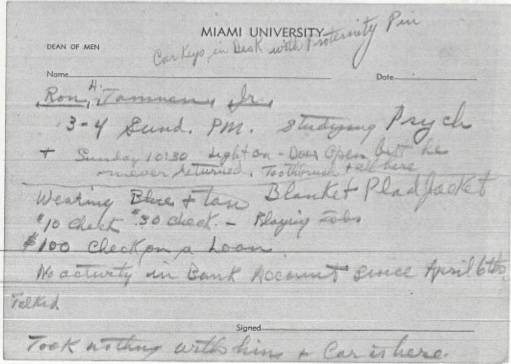 MIAMI UNIVERSITY
DEAN OF MEN
Car Keys in Desk with Fraternity Pin
Name
Date
Ron, H. Tammen, Jr.
3-4 Sund. P.M. Studying Psych
+ Sunday 10:30 Light on - Door Open but he
never returned. Toothbrush + all here
Wearing Blue + tan Blanket Plad Jacket
$10 Check $30 check - Playing Jobs
$100 Check on a Loan
No activity in Bank Account since April 6th
Talked
Signed
Took nothing with him + Car is here.